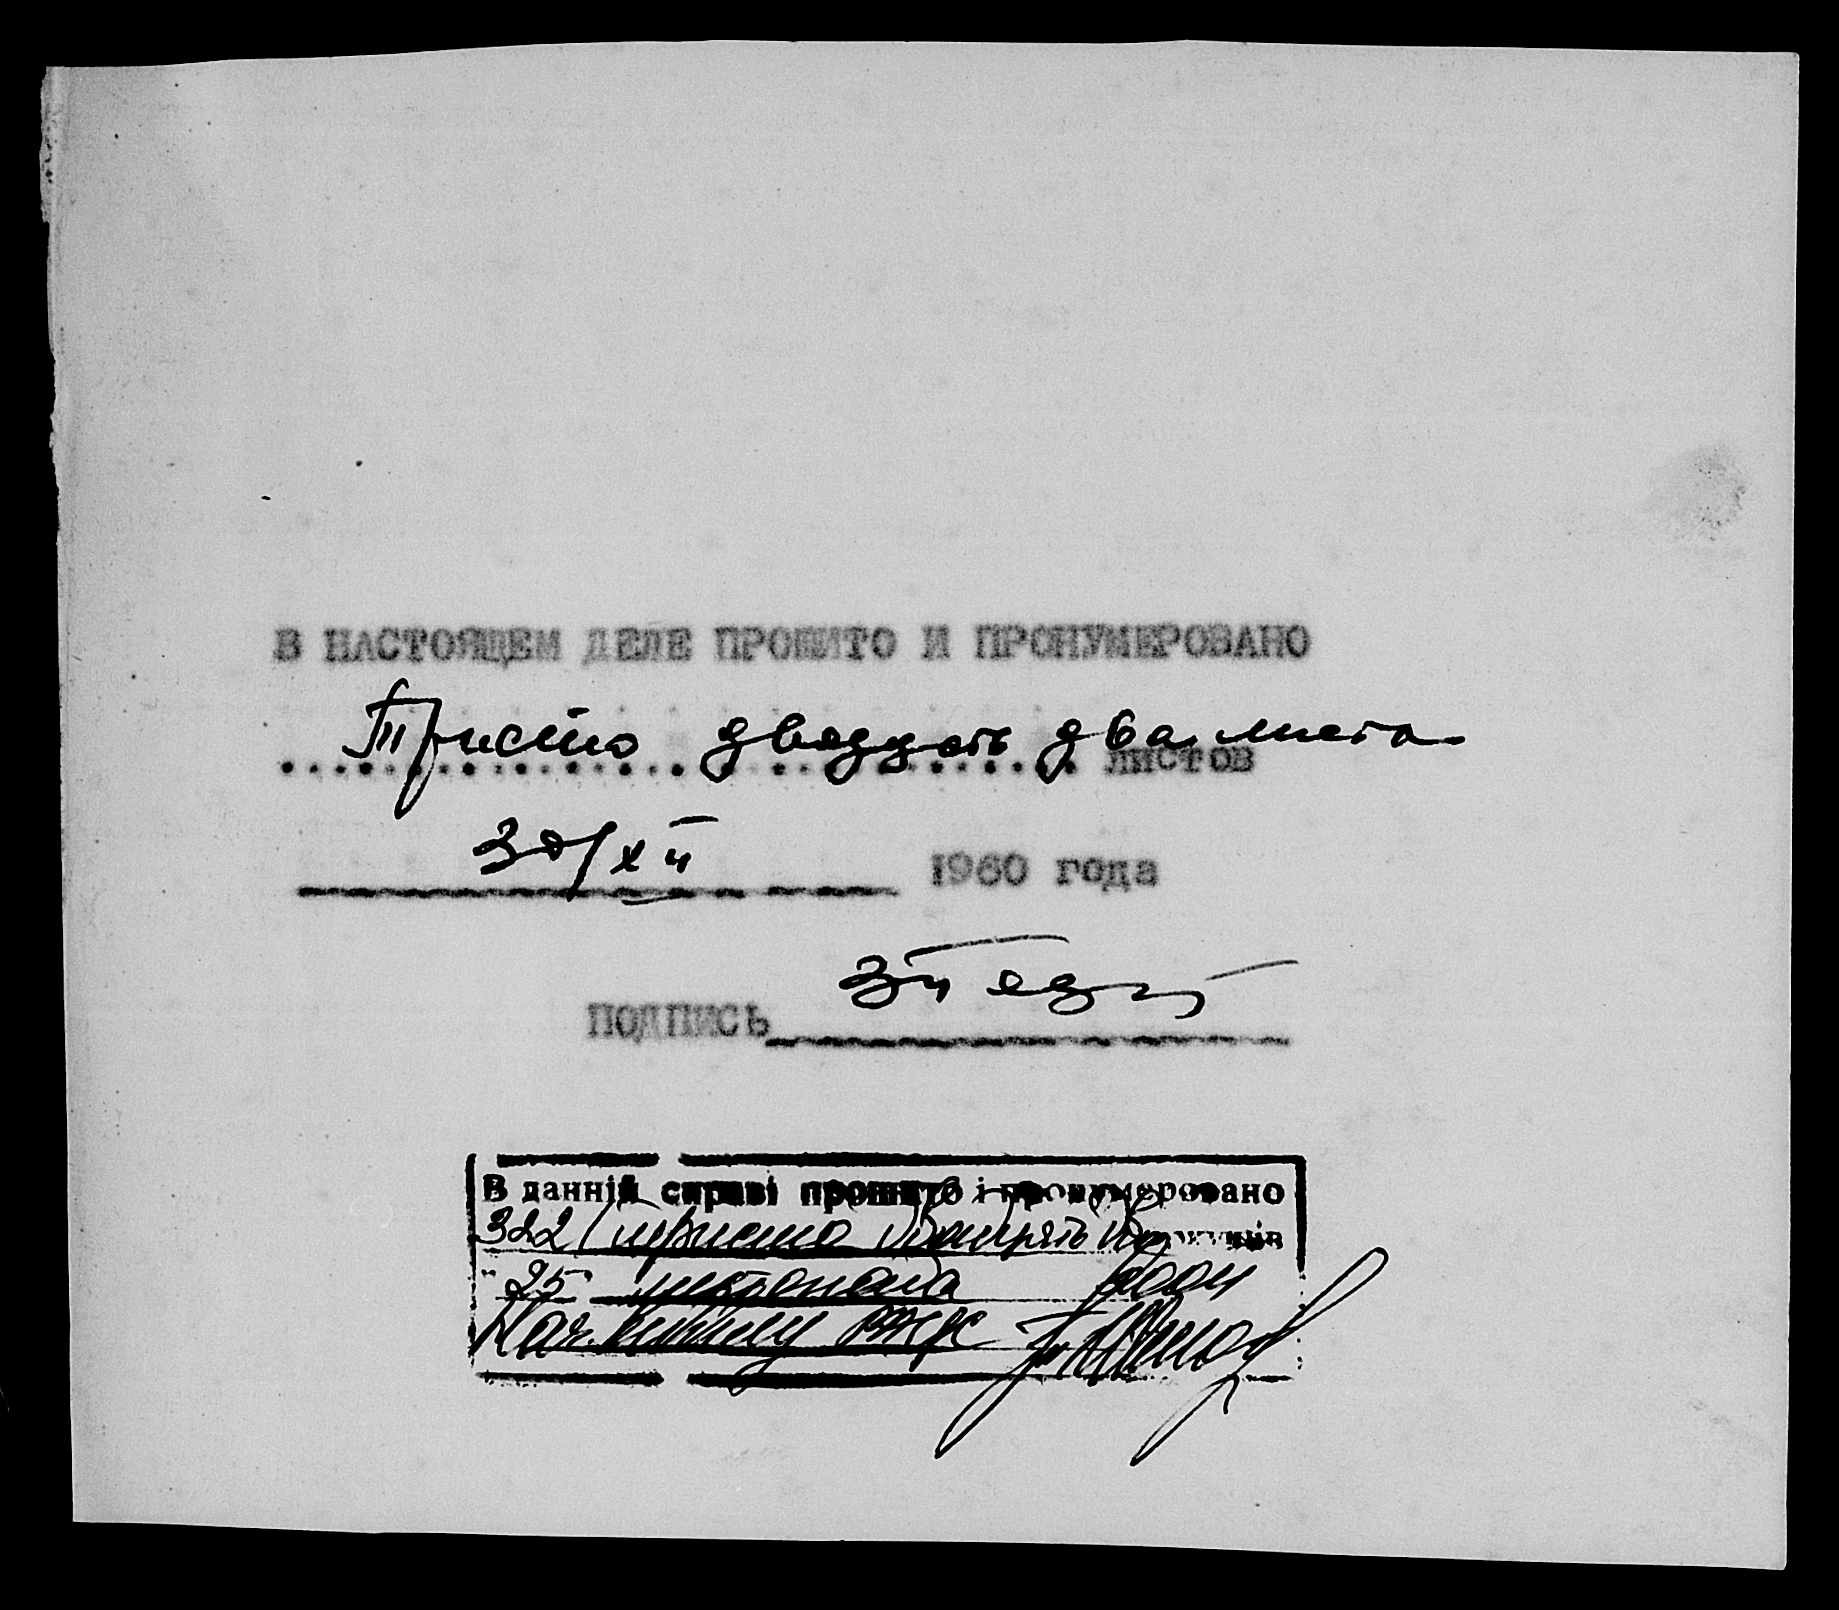 В НАСТОЯЩЕМ ДЕЛЕ ПРОШИТО И ПРОНУМЕРОВАНО
Триста двадцать два листа
листов
30/XII 1960 года
ПОДПИСЬ
В данній справі прошито і пронумеровано
322 (триста двадцять два)
"25" листопада 2004
Нач. відділу